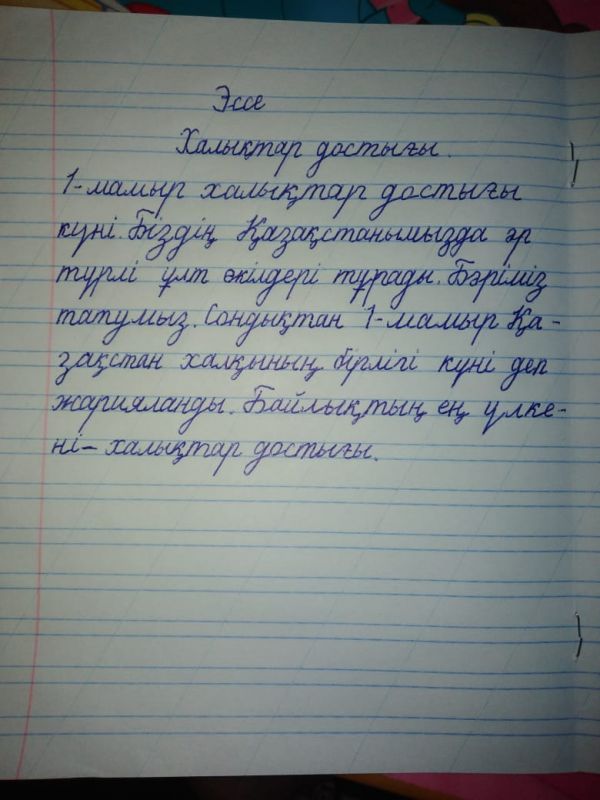 Эссе
Халықтар достығы.
1-мамыр халықтар достығы
күні. Біздің Қазақстанымызда әр
түрлі ұлт өкілдері тұрады. Бәріміз
татумыз. Сондықтан 1-мамыр Қа-
зақстан халқының бірлігі күні деп
жарияланды. Байлықтың ең үлке-
ні – халықтар достығы.